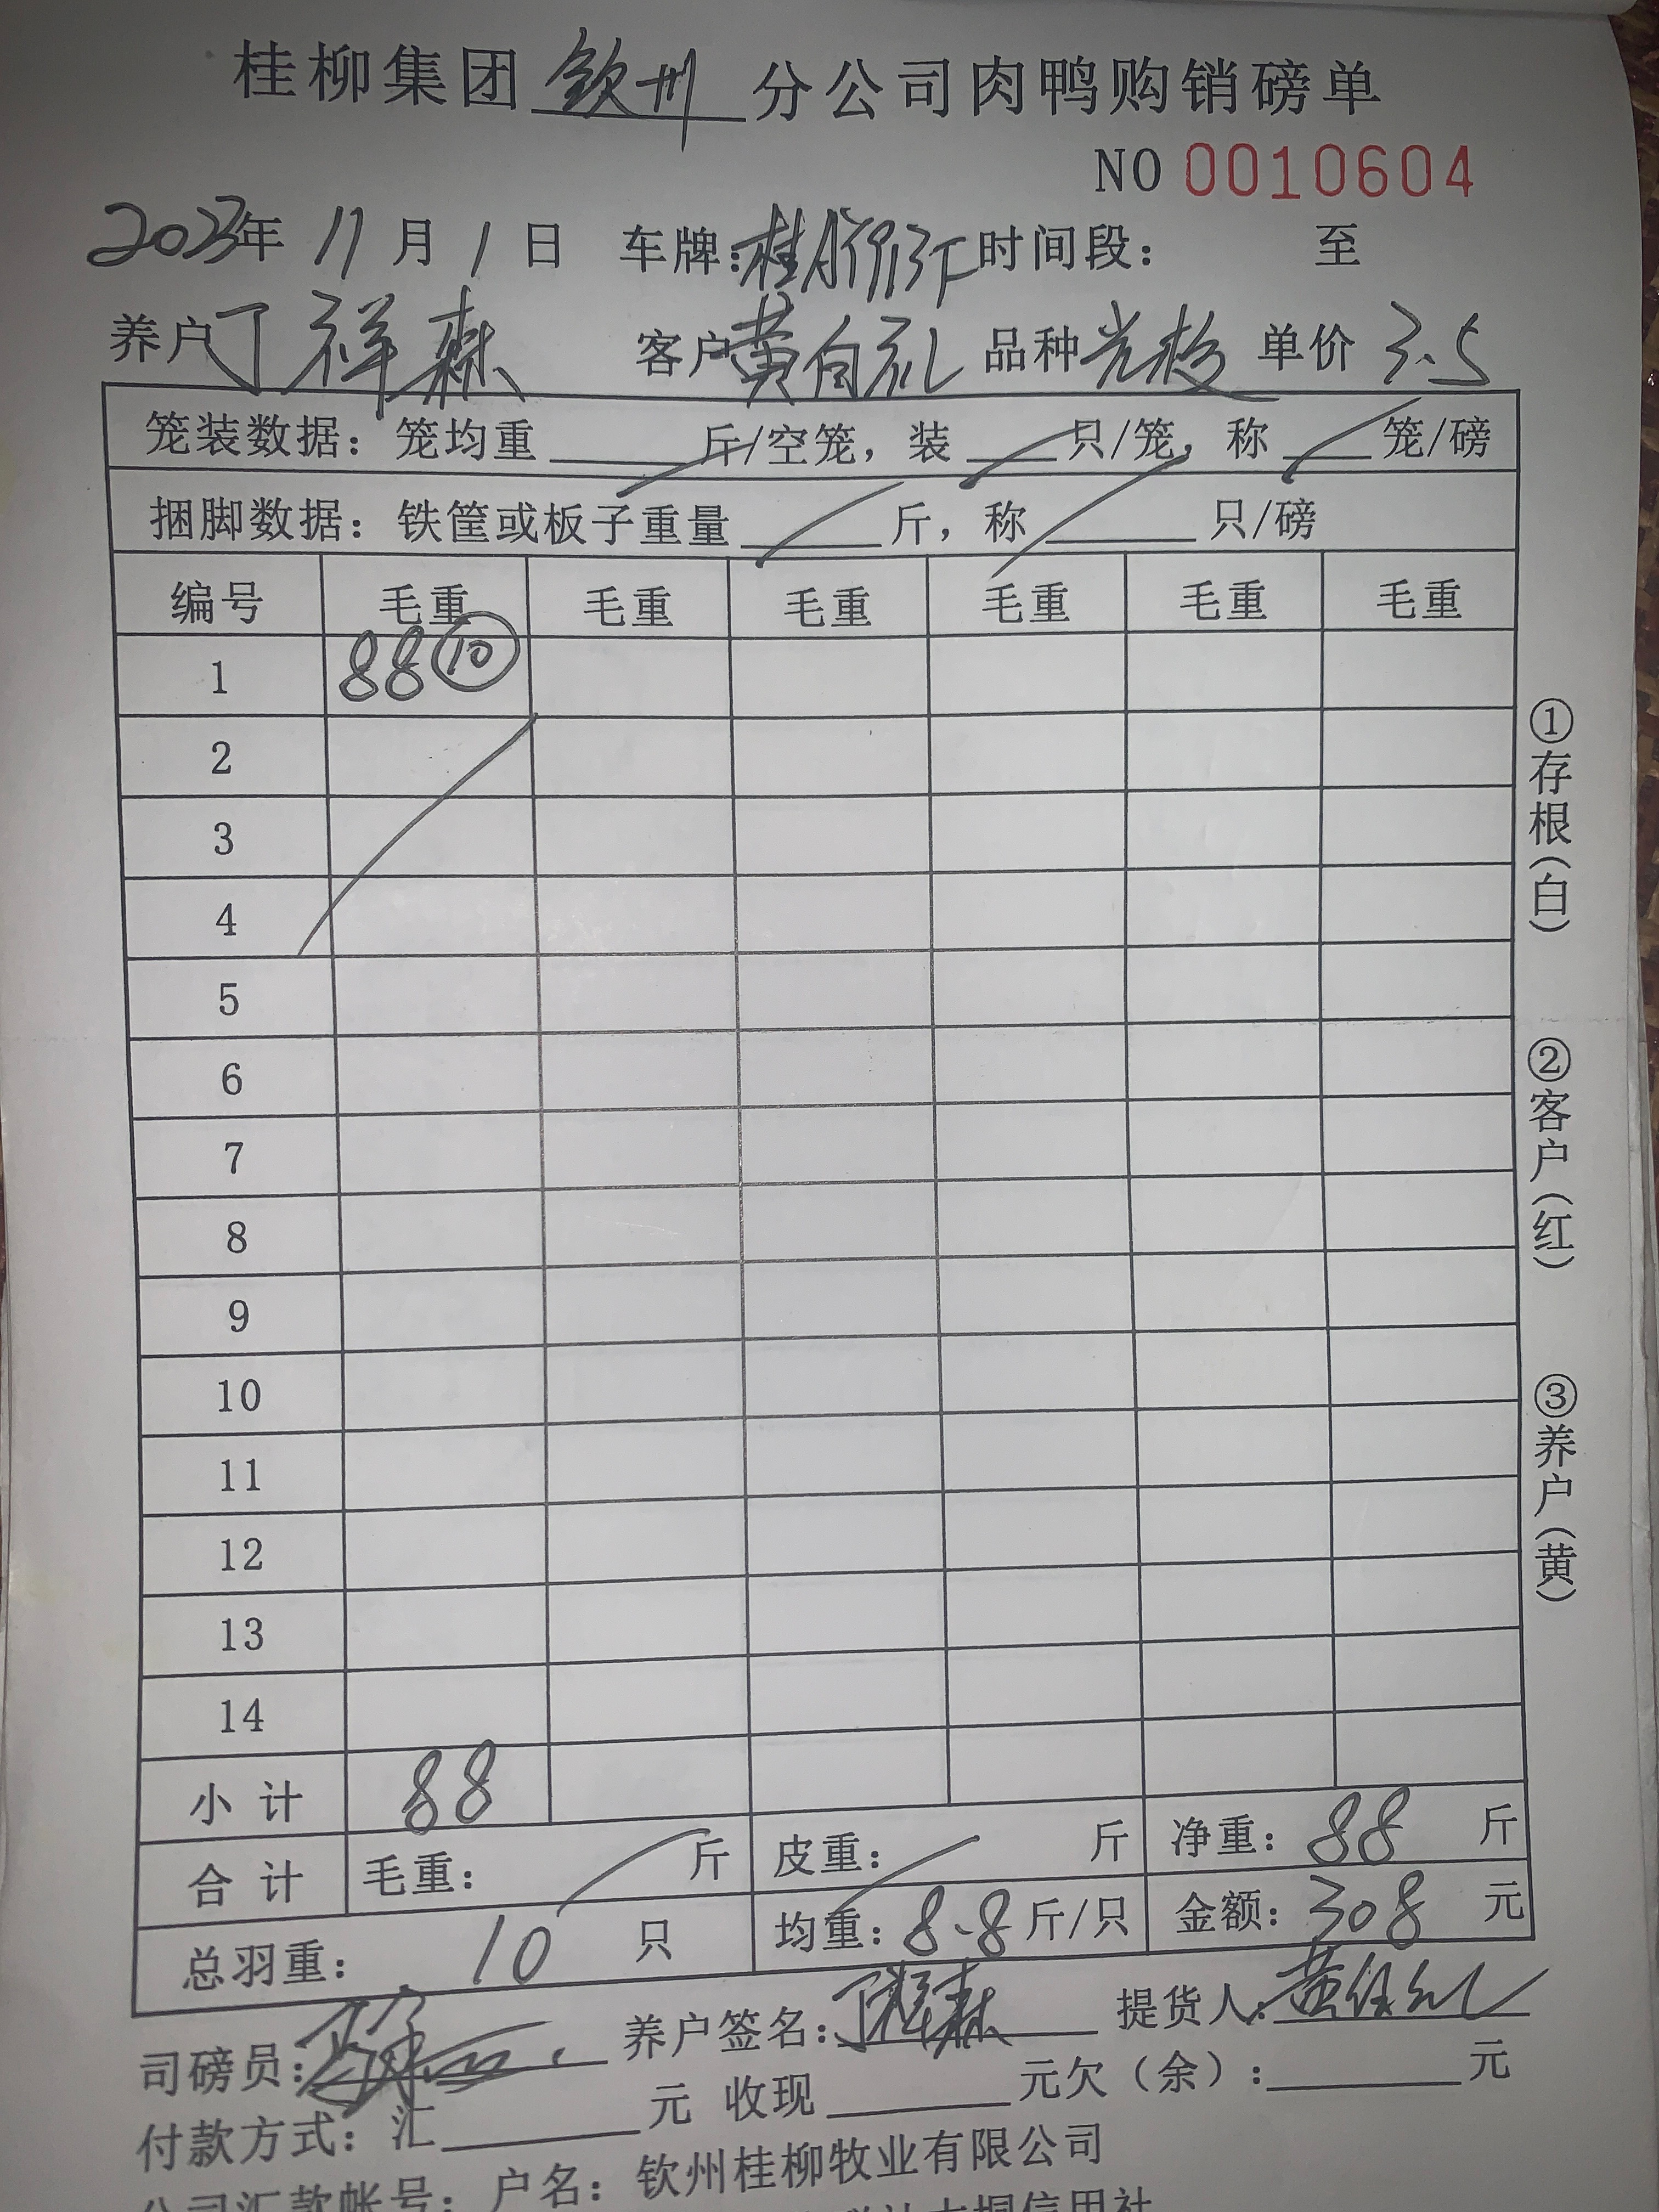 桂柳集团钦州分公司肉鸭购销磅单
NO 0010604
2023年 11月 1日 车牌: 时间段: 至
养户丁祥森 客户黄自礼 品种 单价 3.5
笼装数据: 笼均重______斤/空笼, 装____只/笼, 称____笼/磅
捆脚数据: 铁筐或板子重量______斤, 称______只/磅
编号 毛重 毛重 毛重 毛重 毛重 毛重
1 88 ⑩
2
3
4
5
6
7
8
9
10
11
12
13
14
小计 88
合计 毛重: 斤 皮重: 斤 净重: 88 斤
总羽重: 10 只 均重: 8.8 斤/只 金额: 308 元
司磅员: 养户签名: 丁祥森 提货人:
付款方式: 汇______元 收现______元欠(余):______元
公司汇款帐号: 户名: 钦州桂柳牧业有限公司
信用社
①存根(白)
②客户(红)
③养户(黄)